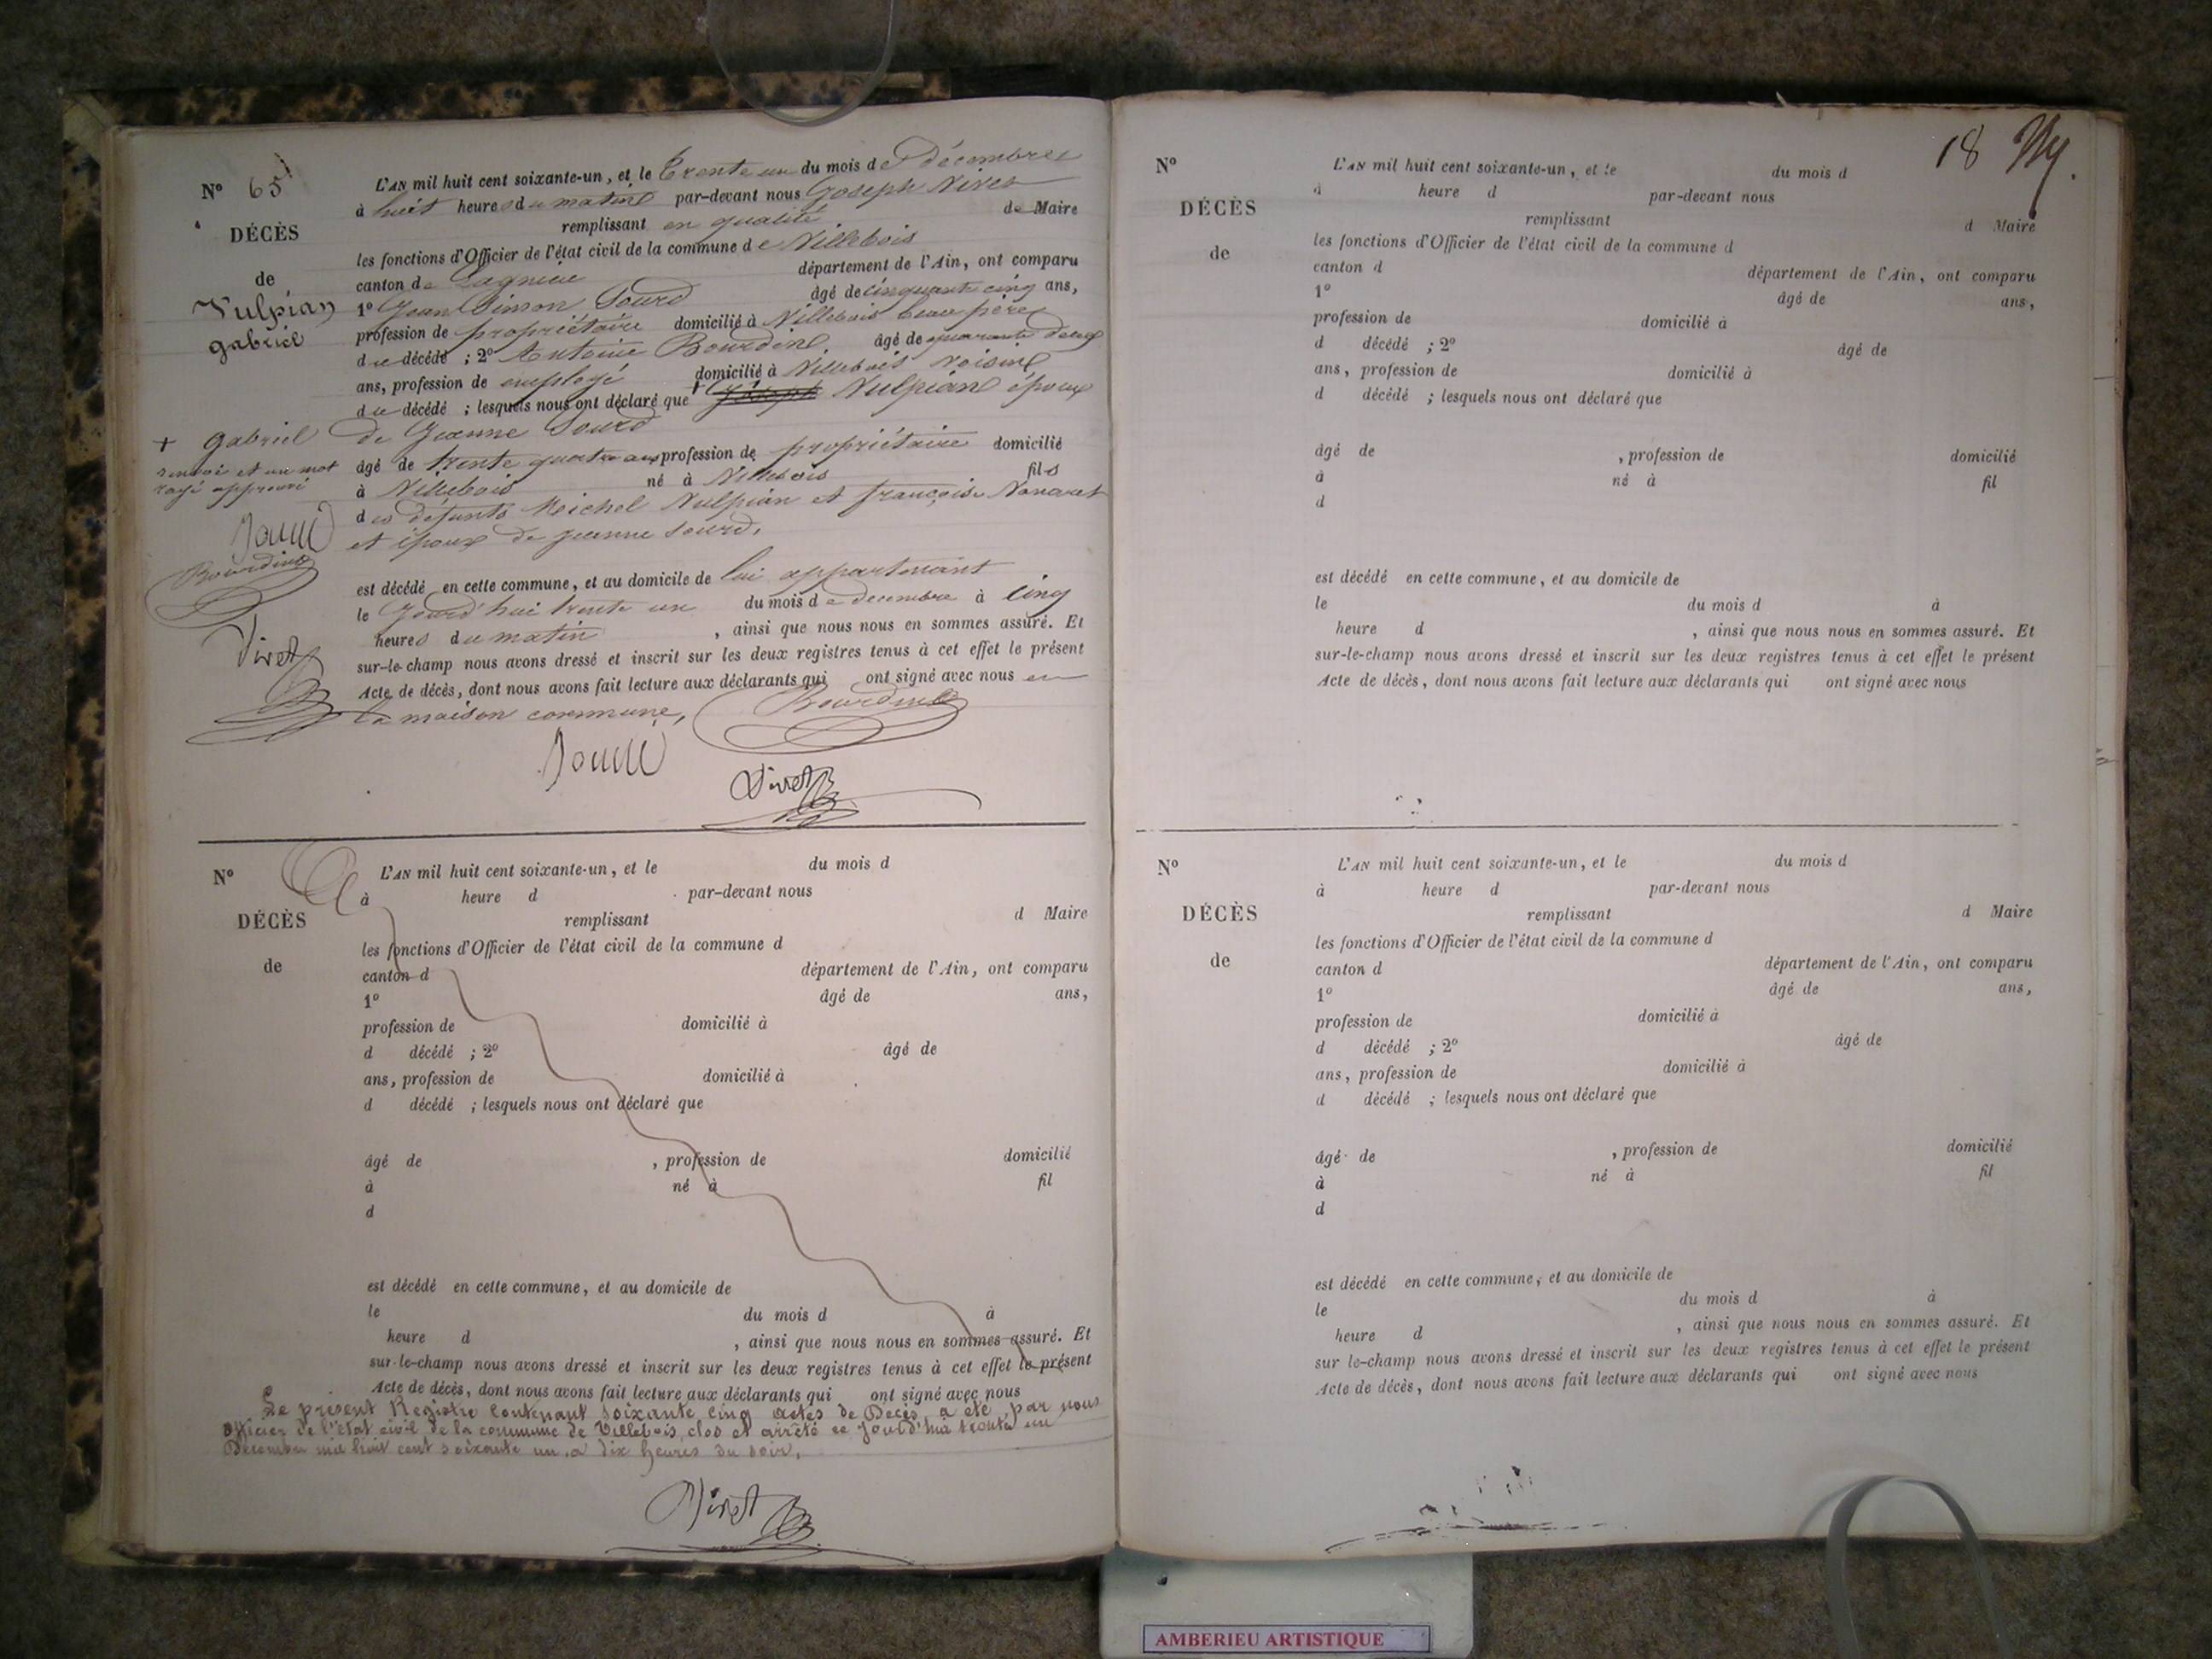 N° 65
DÉCÈS
de
Vulpian
gabriel
L'AN mil huit cent soixante-un, et le trente un du mois de décembre
à huit heures du matin par-devant nous Joseph Vivet
remplissant en qualité de Maire
les fonctions d'Officier de l'état civil de la commune de Villebois
canton de Lagnieu département de l'Ain, ont comparu
1° Jean Simon Sourd âgé de cinquante cinq ans,
profession de propriétaire domicilié à Villebois beau père
du décédé ; 2° Antoine Bourdin âgé de quarante deux
ans, profession de employé domicilié à Villebois voisin
du décédé ; lesquels nous ont déclaré que + Joseph Vulpian époux
de Jeanne Sourd
âgé de trente quatre ans profession de propriétaire domicilié
à Villebois né à Villebois fils
des défunts Michel Vulpian et françoise
et époux de jeanne Sourd.
+ gabriel
renvoi et un mot
rayé approuvé
Sourd
Bourdin
Vivet
est décédé en cette commune, et au domicile de lui appartenant
le Jourd'hui trente un du mois de decembre à cinq
heures du matin , ainsi que nous nous en sommes assuré. Et
sur-le-champ nous avons dressé et inscrit sur les deux registres tenus à cet effet le présent
Acte de décès, dont nous avons fait lecture aux déclarants qui ont signé avec nous en
la maison commune,
Bourdin
Sourd
Vivet
N°
DÉCÈS
de
L'AN mil huit cent soixante-un, et le du mois d
à heure d par-devant nous
remplissant d Maire
les fonctions d'Officier de l'état civil de la commune d
canton d département de l'Ain, ont comparu
1° âgé de ans,
profession de domicilié à
d décédé ; 2° âgé de
ans, profession de domicilié à
d décédé ; lesquels nous ont déclaré que
âgé de , profession de domicilié
à né à fil
d
est décédé en cette commune, et au domicile de
le du mois d à
heure d , ainsi que nous nous en sommes assuré. Et
sur-le-champ nous avons dressé et inscrit sur les deux registres tenus à cet effet le présent
Acte de décès, dont nous avons fait lecture aux déclarants qui ont signé avec nous
Le présent Registre Contenant soixante cinq actes de Décès, a été par nous
officier de l'état civil de la commune de Villebois, clos et arrêté ce jourd'hui trente un
Décembre mil huit cent soixante un, a dix heures du soir.
Vivet
18
N°
DÉCÈS
de
L'AN mil huit cent soixante-un, et le du mois d
à heure d par-devant nous
remplissant d Maire
les fonctions d'Officier de l'état civil de la commune d
canton d département de l'Ain, ont comparu
1° âgé de ans,
profession de domicilié à
d décédé ; 2° âgé de
ans, profession de domicilié à
d décédé ; lesquels nous ont déclaré que
âgé de , profession de domicilié
à né à fil
d
est décédé en cette commune, et au domicile de
le du mois d à
heure d , ainsi que nous nous en sommes assuré. Et
sur-le-champ nous avons dressé et inscrit sur les deux registres tenus à cet effet le présent
Acte de décès, dont nous avons fait lecture aux déclarants qui ont signé avec nous
N°
DÉCÈS
de
L'AN mil huit cent soixante-un, et le du mois d
à heure d par-devant nous
remplissant d Maire
les fonctions d'Officier de l'état civil de la commune d
canton d département de l'Ain, ont comparu
1° âgé de ans,
profession de domicilié à
d décédé ; 2° âgé de
ans, profession de domicilié à
d décédé ; lesquels nous ont déclaré que
âgé de , profession de domicilié
à né à fil
d
est décédé en cette commune, et au domicile de
le du mois d à
heure d , ainsi que nous nous en sommes assuré. Et
sur le-champ nous avons dressé et inscrit sur les deux registres tenus à cet effet le présent
Acte de décès, dont nous avons fait lecture aux déclarants qui ont signé avec nous
AMBERIEU ARTISTIQUE